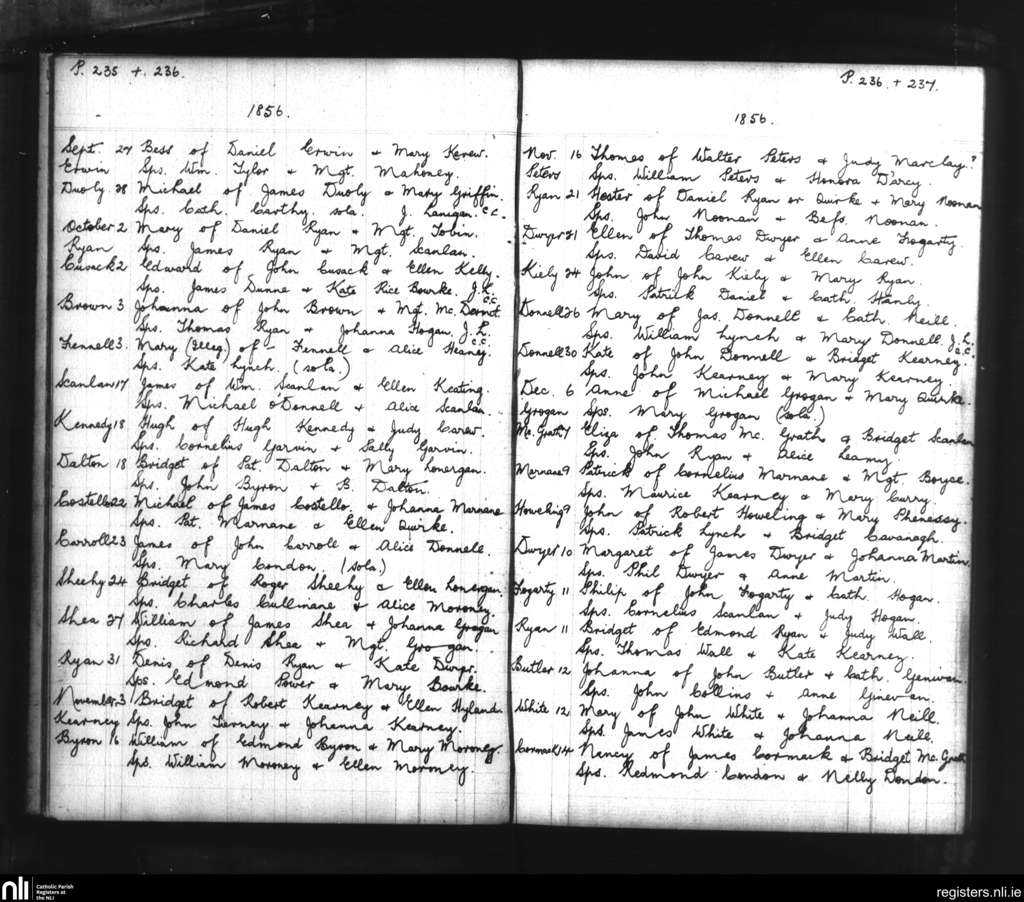 P. 235 + 236.
1856.
Sept. 27 Bess of Daniel Erwin & Mary Kerew.
Erwin Sps. Wm. Tylor & Mgt. Mahoney.
Duoly 28 Michael of James Duoly & Mary Griffin.
Sps. Cath. Carthy, sola. J. Lanigan. C.C.
October 2 Mary of Daniel Ryan & Mgt. Tobin.
Ryan Sps. James Ryan & Mgt. Scanlan.
Cusack 2 Edward of John Cusack & Ellen Kelly.
Sps. James Dunne & Kate Rice Bourke. J.L. C.C.
Brown 3 Johanna of John Brown & Mgt. Mc. Dernot
Sps. Thomas Ryan & Johanna Hogan. J.L. C.C.
Fennell 3. Mary (Illeg.) of - Fennell & Alice Heaney.
Sps. Kate Lynch. (sola.)
Scanlan 17 James of Wm. Scanlan & Ellen Keating.
Sps. Michael O'Donnell & Alice Scanlan.
Kennedy 18 Hugh of Hugh Kennedy & Judy Carew.
Sps. Cornelius Garvin & Sally Garvin.
Dalton 18 Bridget of Pat. Dalton & Mary Lonergan.
Sps. John Byron & B. Dalton.
Costello 22 Michael of James Costello & Johanna Marnane
Sps. Pat. Marnane & Ellen Quirke.
Carroll 23 James of John Carroll & Alice Donnell.
Sps. Mary Condon. (sola.)
Sheehy 24 Bridget of Roger Sheehy & Ellen Lonergan.
Sps. Charles Cullinane & Alice Moroney.
Shea 27 William of James Shea & Johanna Grogan
Sps. Richard Shea & Mgt. Grogan.
Ryan 31 Denis of Denis Ryan & Kate Dwyer.
Sps. Edmond Power & Mary Bourke.
November 3 Bridget of Robert Kearney & Ellen Hyland
Kearney Sps. John Torney & Johanna Kearney.
Byron 16 William of Edmond Byron & Mary Moroney.
Sps. William Moroney & Ellen Moroney.
P. 236 + 237.
1856.
Nov. 16 Thomas of Walter Peters & Judy Marclay?
Peters Sps. William Peters & Honora D'arcy.
Ryan 21 Hester of Daniel Ryan or Quirke & Mary Noonan
Sps. John Noonan & Bess. Noonan.
Dwyer 21 Ellen of Thomas Dwyer & Anne Fogarty.
Sps. David Carew & Ellen Carew.
Kiely 24 John of John Kiely & Mary Ryan.
Sps. Patrick Daniel & Cath. Hanly.
Donnell 26 Mary of Jas. Donnell & Cath. Neill.
Sps. William Lynch & Mary Donnell. J.L. C.C.
Donnell 30 Kate of John Donnell & Bridget Kearney.
Sps. John Kearney & Mary Kearney.
Dec. 6 Anne of Michael Grogan & Mary Quirke.
Grogan Sps. Mary Grogan (sola.)
Mc. Grath 7 Eliza of Thomas Mc. Grath & Bridget Scanlan
Sps. John Ryan & Alice Leamy.
Marnane 9 Patrick of Cornelius Marnane & Mgt. Boyse.
Sps. Maurice Kearney & Mary Curry.
Howeling 9 John of Robert Howeling & Mary Phenessy.
Sps. Patrick Lynch & Bridget Cavanagh.
Dwyer 10 Margaret of James Dwyer & Johanna Martin.
Sps. Phil Dwyer & Anne Martin.
Fogarty 11 Philip of John Fogarty & Cath. Hogan.
Sps. Cornelius Scanlan & Judy Hogan.
Ryan 11 Bridget of Edmond Ryan & Judy Wall.
Sps. Thomas Wall & Kate Kearney.
Butler 12 Johanna of John Butler & Cath. Ginivan
Sps. John Collins & Anne Ginevan.
White 12 Mary of John White & Johanna Neill.
Sps. James White & Johanna Neill.
Cormack 14 Nancy of James Cormack & Bridget Mc. Grath
Sps. Redmond Condon & Nelly Dondon.
nli
Catholic Parish
Registers at
the NLI
registers.nli.ie